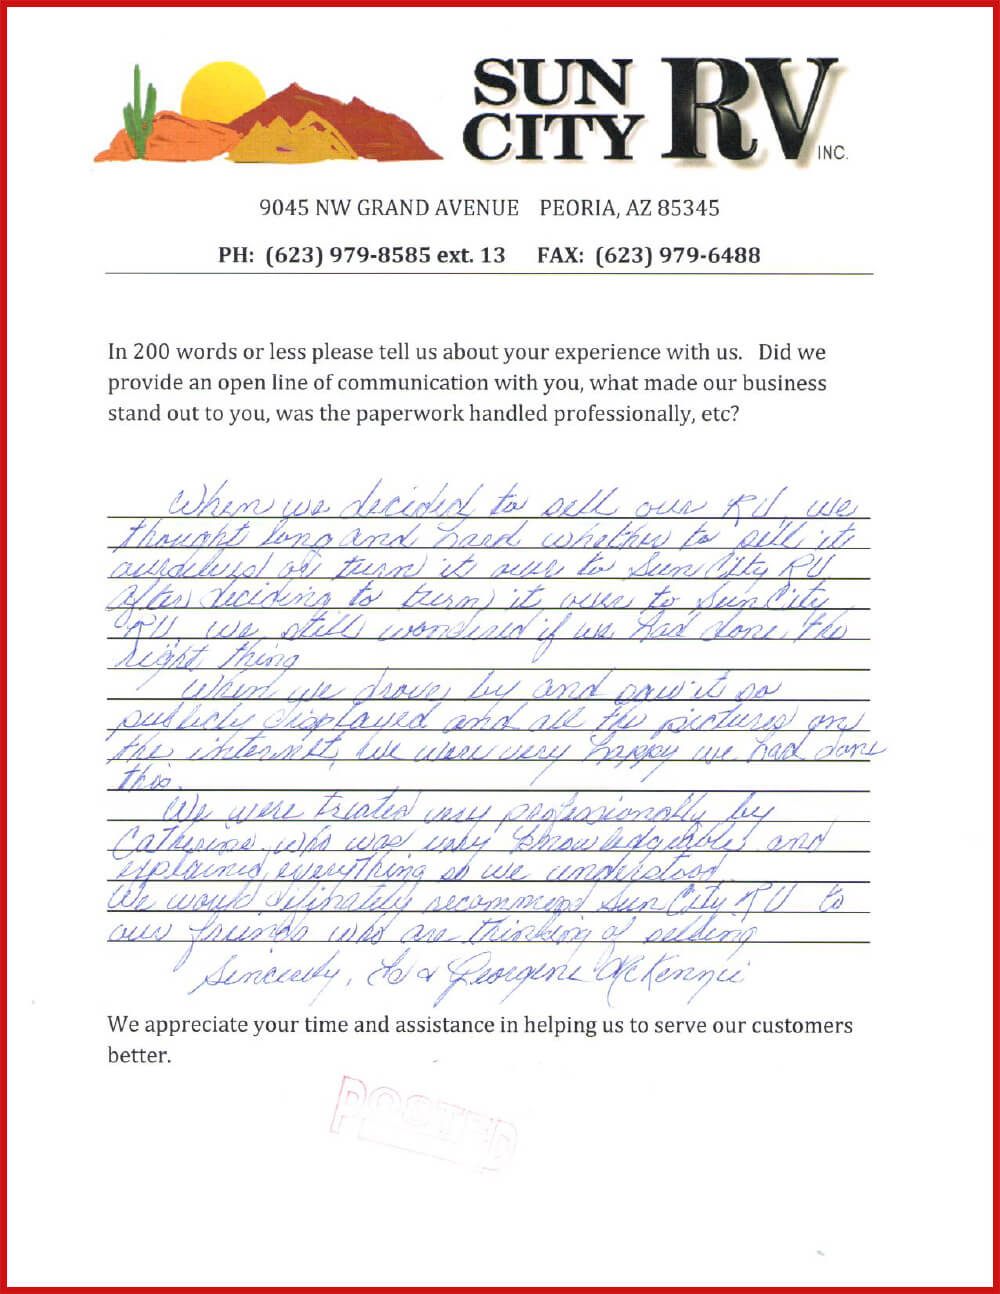 SUN
CITY RV INC.
9045 NW GRAND AVENUE PEORIA, AZ 85345
PH: (623) 979-8585 ext. 13 FAX: (623) 979-6488
In 200 words or less please tell us about your experience with us. Did we
provide an open line of communication with you, what made our business
stand out to you, was the paperwork handled professionally, etc?
When we decided to sell our RV, we
thought long and hard whether to sell it
ourselves or turn it over to Sun City RV
After deciding to turn it over to Sun City
RV, we still wondered if we had done the
right thing
When we drove by and saw it so
publicly displayed and all the pictures on
the internet, we were very happy we had done
this.
We were treated very professionally by
Catherine who was very knowledgable and
explained everything so we understood.
We would difinately recommend Sun City RV to
our friends who are thinking of selling
Sincerely, & Georgene McKennie
We appreciate your time and assistance in helping us to serve our customers
better.
POSTED